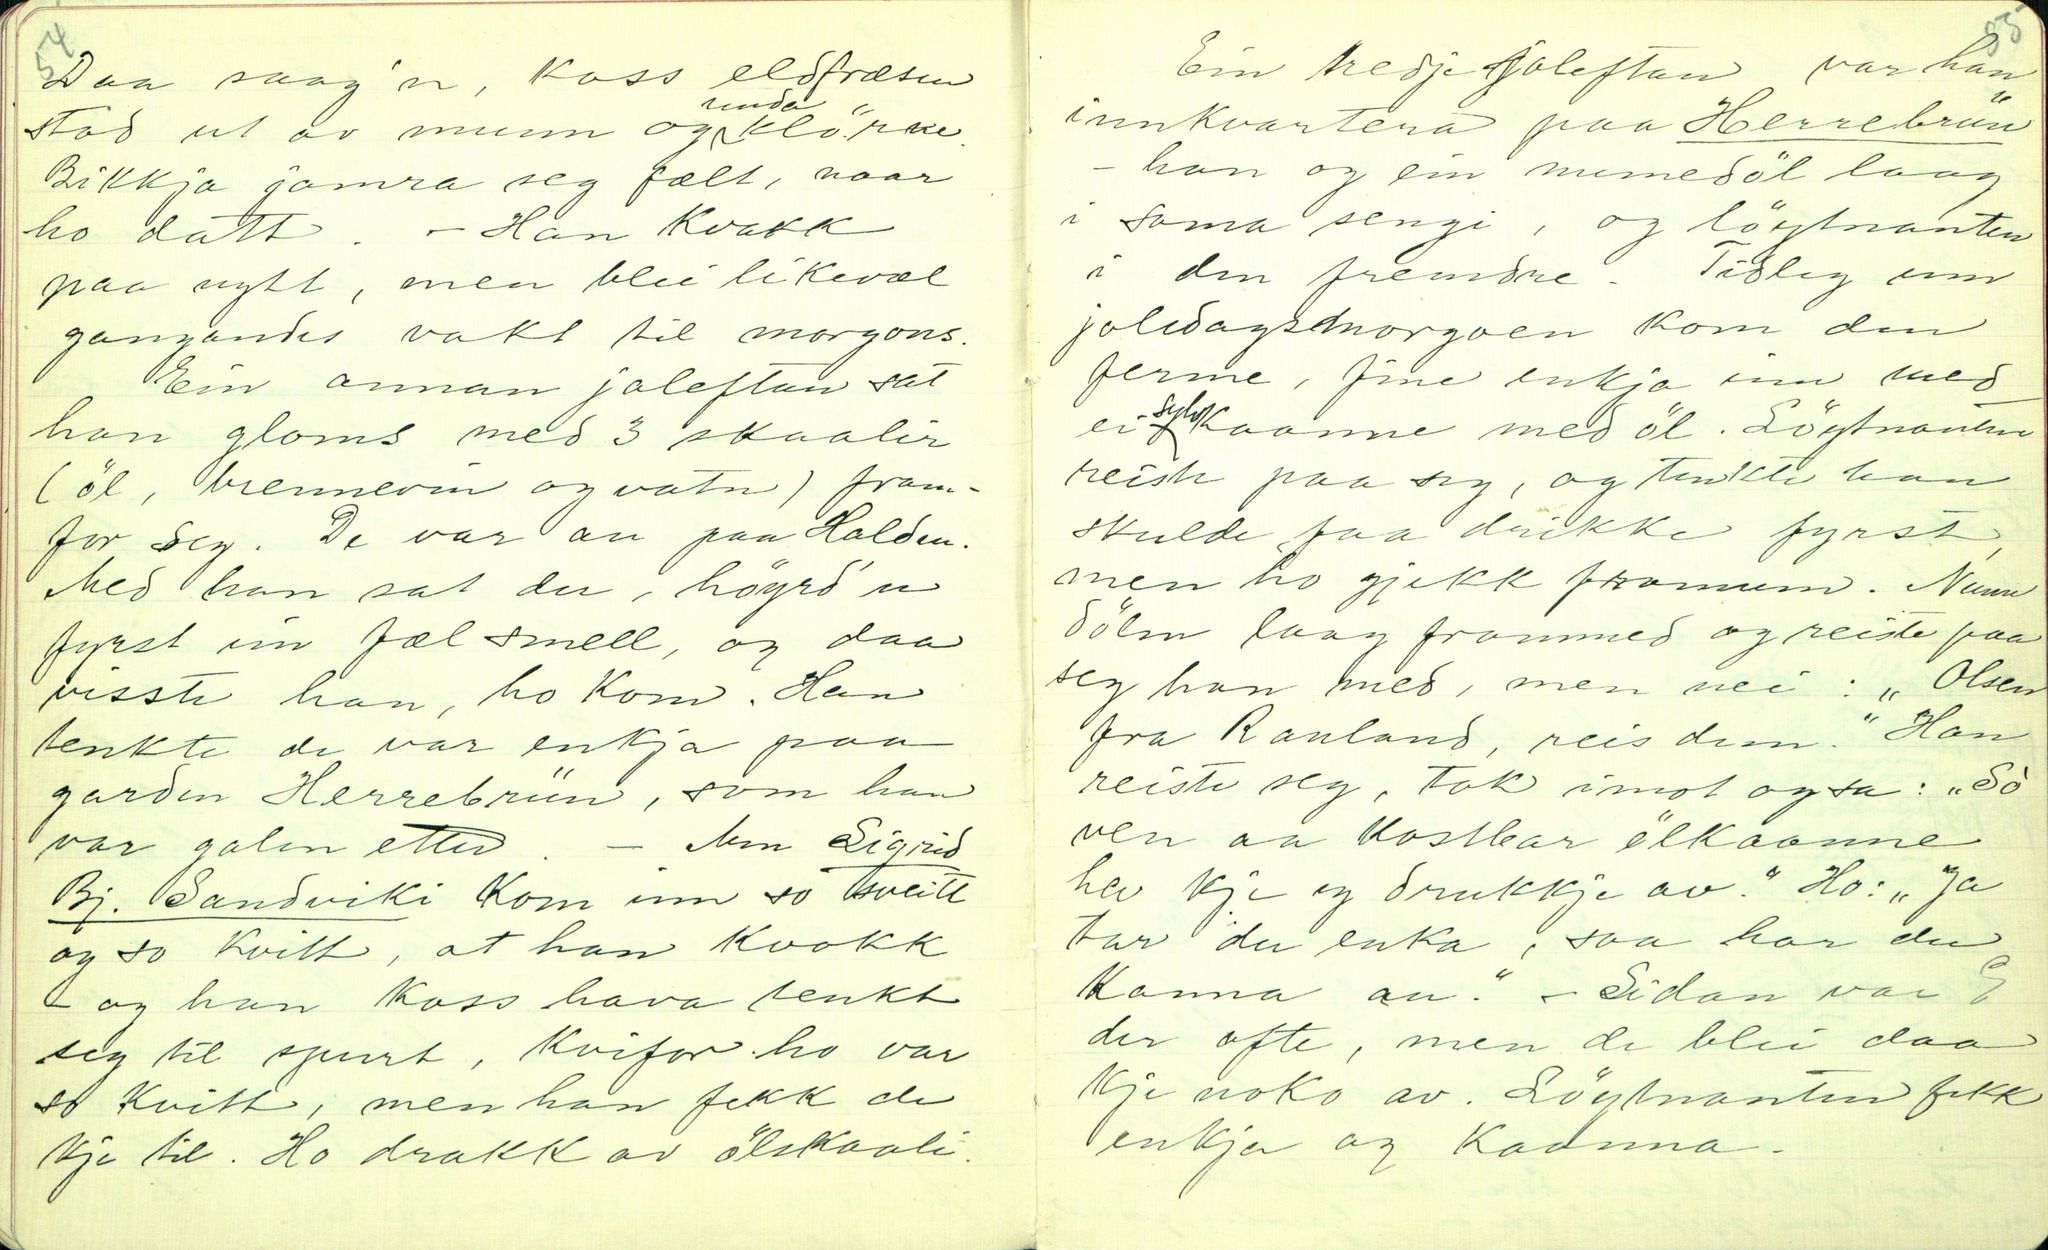 54
Daa saag'n, koss eldfræsen
stod ut av munn og unda klö'rne.
Bikkja jamra seg fælt, naar
ho datt. - Han kvakk
paa nytt, men blei likevæl
gangandes vakt til morgons.
Ein annan joleftan sat
han gloms med 3 skaalir
(öl, brennevin og vatn) fram-
for seg. De var au paa Halden.
Med han sat der, höyrd'n
fyrst ein fæl smell, og daa
visste han, ho kom. Han
tenkte de var enkja paa
garden Herrebrüen, som han
var galen etter. - Men Sigrid
Bj. Sandviki kom inn so sveitt
og so kvitt, at han kvakk
- og han koss hava tenkt
seg til spurt, kvifor ho var
so kvitt, men han fekk de
kje til. Ho drakk av ölskaali.
55
Ein tredje joleftan var han
innkvartera paa Herrebrüen
- han og ein numedöl laag
i sama sengi, og löytnanten
i den fremdre. Tidleg um
joledagsmorgoen kom den
ferme, fine enkja inn med
ei sylvkaanne med öl. Löytnanten
reiste paa seg, og tenkte han
skulde faa drikke fyrst,
men ho gjekk framum. Nume
dölen laag frammed og reiste paa
seg han med, men nei: „Olsen
fra Rauland, reis dem." Han
reiste seg, tok imot og sa: „Så
ven aa kostbar ölkaanne
hev kje eg drukkje av." Ho: „Ja
tar du enka, saa har du
kanna au." - Sidan var E
der ofte, men de blei daa
kje noko av. Löytnanten fekk
enkja og kaanna.